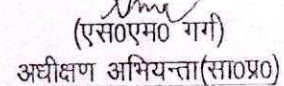 (एस0एम0 गर्ग)
अधीक्षण अभियन्ता(सा0प्र0)